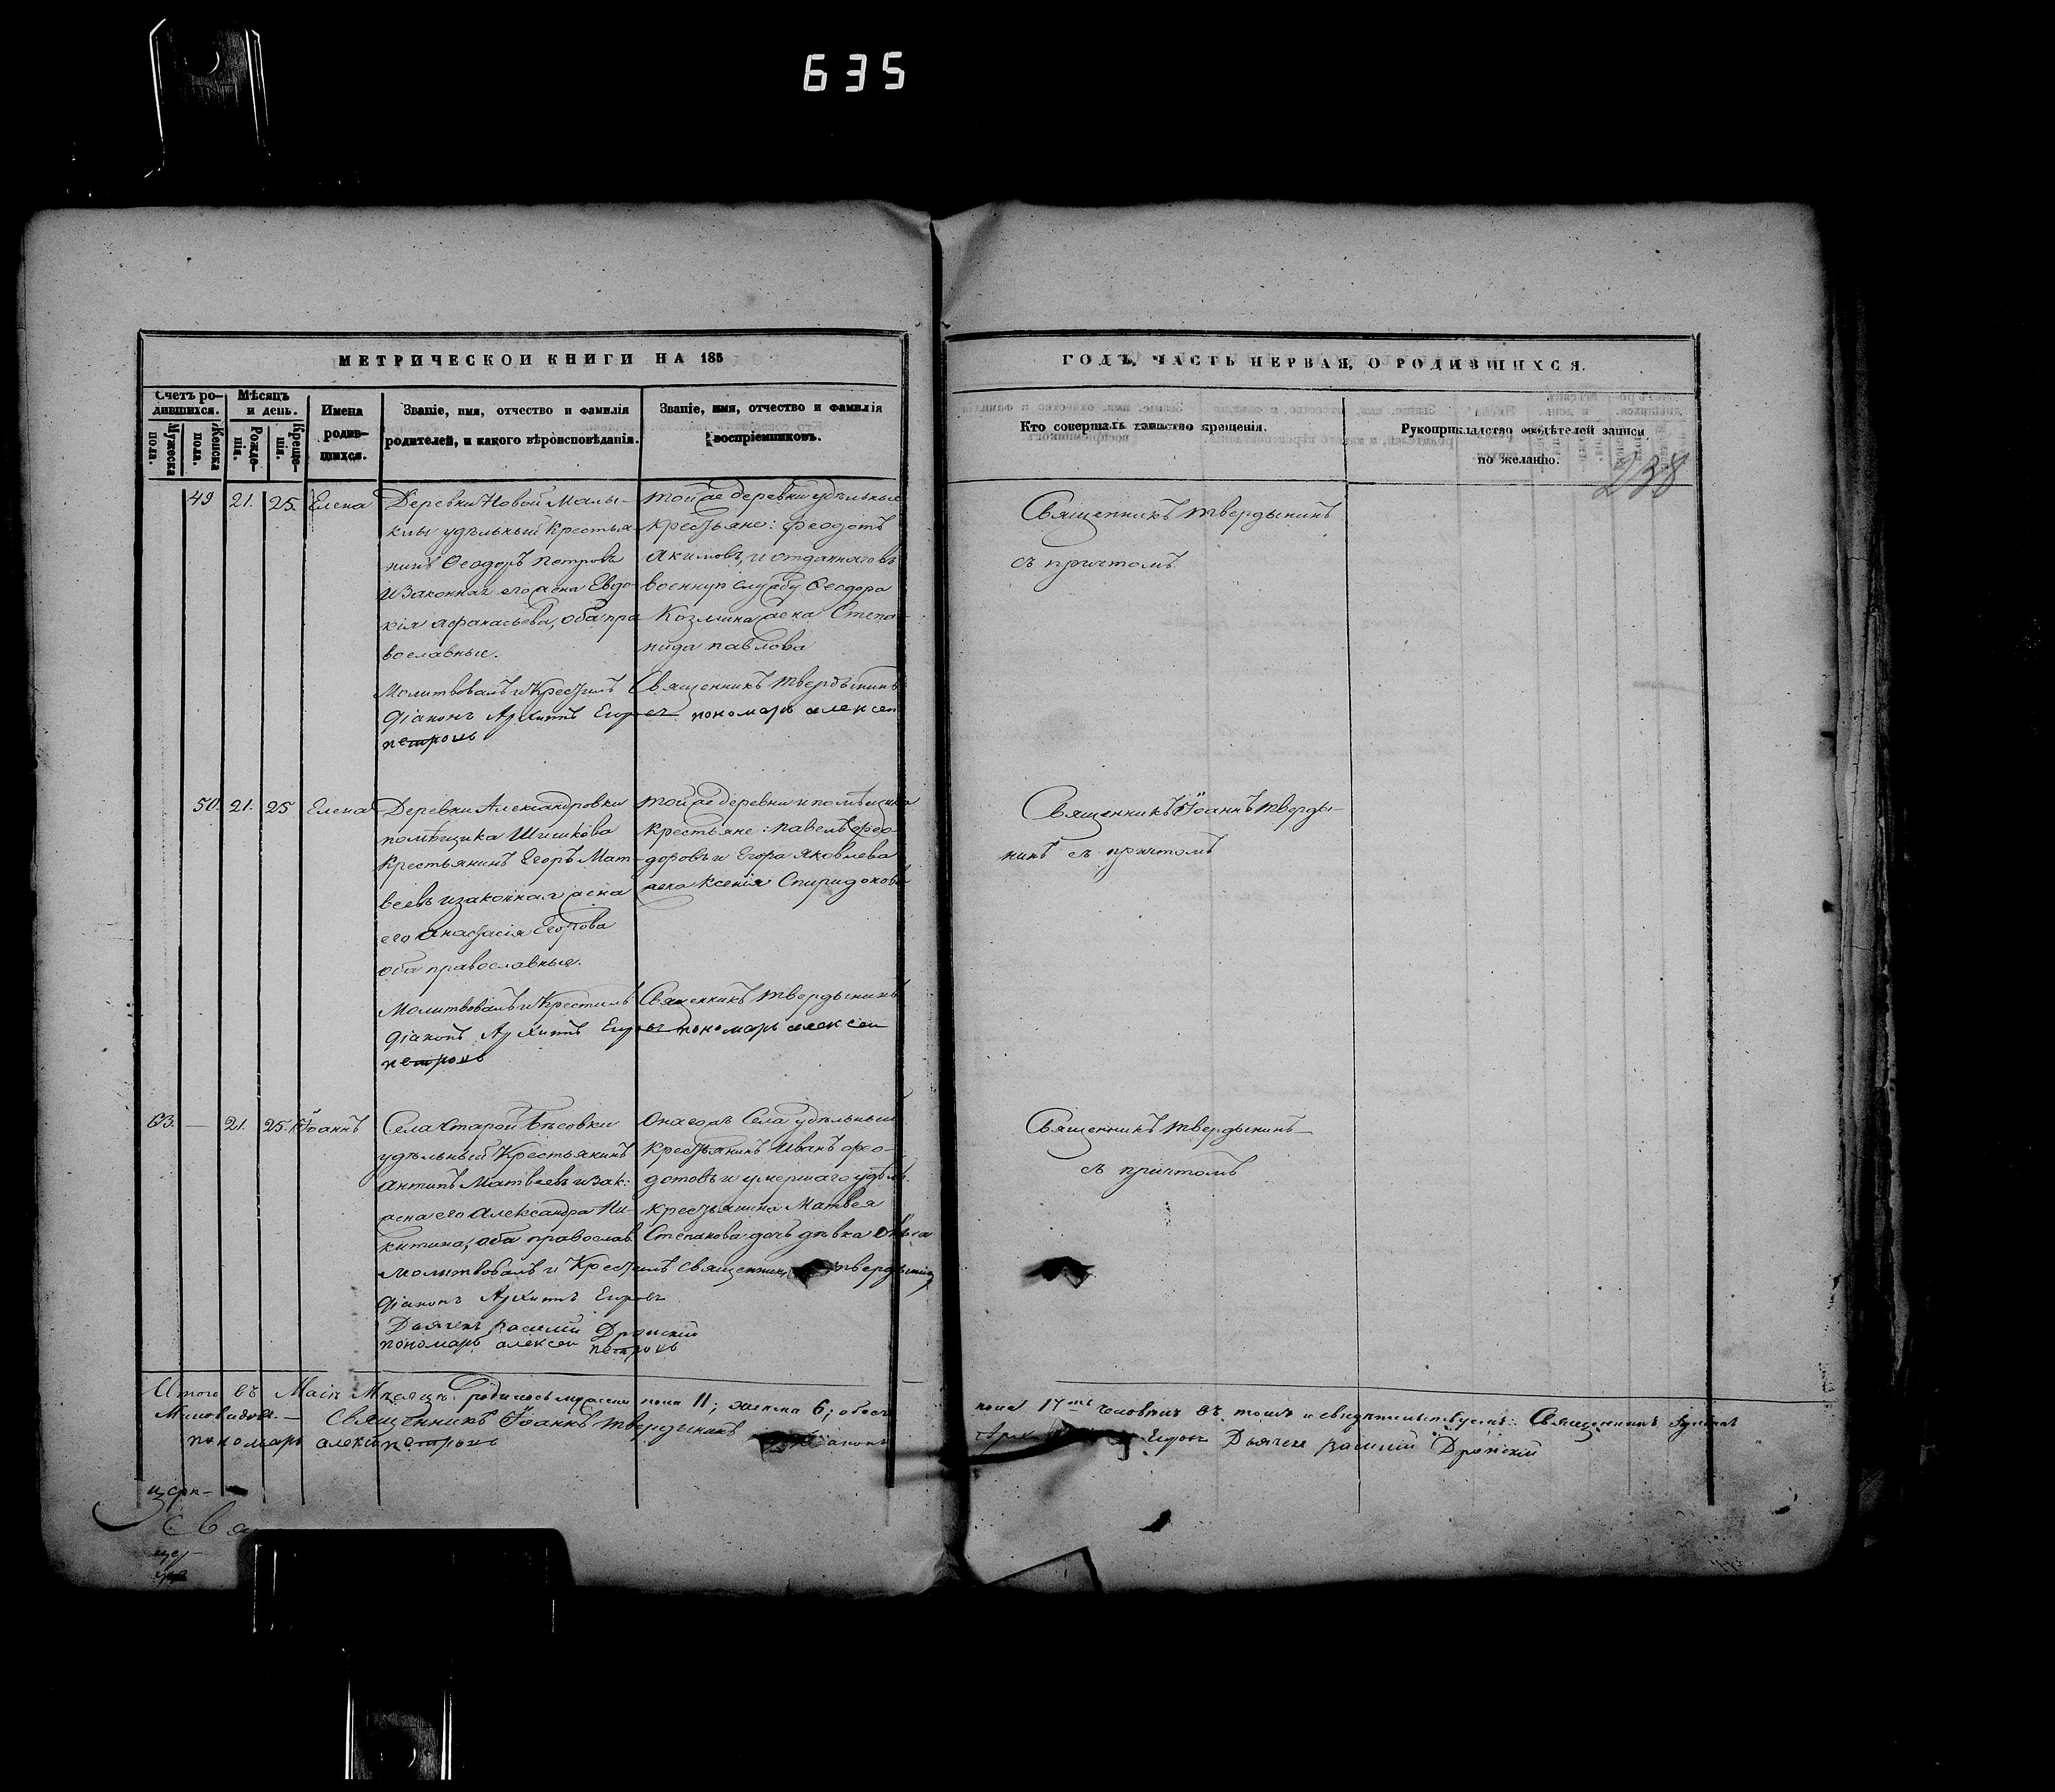 635
МЕТРИЧЕСКОЙ КНИГИ НА 185
ГОДЪ, ЧАСТЬ ПЕРВАЯ, О РОДИВШИХСЯ.
Счетъ родившихся.
Мужеска пола.
Женска пола.
Мѣсяцъ и день.
Рожденія.
Крещенія.
Имена родившихся.
Званіе, имя, отчество и фамилія
родителей, и какого вѣроисповѣданія.
Званіе, имя, отчество и фамилія
воспріемниковъ.
Кто совершалъ таинство крещенія.
Рукоприкладство свидѣтелей записи
по желанію.
238
49 21. 25. Елена
Деревни Новой Малы-
клы удѣльный крестья-
нинъ Ѳеодоръ Петровъ
и законная его жена Евдо-
кія Афанасьева, оба пра
вославные.
той же деревни удѣльные
крестьяне: Феодотъ
Акимовъ, и отданнаго въ
военную службу Ѳеодора
Козмина жена Степа-
нида Павлова
Священникъ Твердынинъ
съ причтомъ
Молитвовалъ и Крестилъ Священникъ Твердынинъ
Діаконъ Архипъ Егоровъ пономарь алексеи
петровъ
50. 21. 25 Елена
Деревни Александровки
помѣщика Шишкова
Крестьянинъ Егоръ Мат-
веевъ и законная жена
его Анастасія Егорова
оба православные.
той же деревни и помѣщика
крестьяне: Павелъ Фео-
доровъ и Егора Яковлева
жена Ксенія Спиридонова
Священникъ Іоаннъ Тверды-
нинъ съ причтомъ
Молитвовалъ и Крестилъ Священникъ Твердынинъ
Діаконъ Архипъ Егоровъ пономарь алексеи
петровъ
63. — 21. 25. Іоаннъ
Села Старой Бѣсовки
удѣльный Крестьянинъ
Антипъ Матвеевъ и зак:
жена его Александра Ни-
китина, оба православ.
Онагожъ Села удѣльный
Крестьянинъ Иванъ Фео-
дотовъ и умершаго удѣл.
крестьянина Матвея
Степанова дочь дѣвка
Священникъ Твердынинъ
съ причтомъ
Молитвовалъ и Крестилъ Священникъ Твердынинъ
Діаконъ Архипъ Егоровъ
Дьячекъ Василий Дронский
пономарь алексеи петровъ
Итого въ Маіѣ Мѣсяцѣ родилось мужеска пола 11; женска 6; обоего
пола 17ть человѣкъ въ томъ и свидѣтельствуемъ: Священникъ
Священникъ Іоаннъ Твердынинъ
Діаконъ
Егоровъ Дьячекъ Василий Дронский
пономарь алексеи петровъ